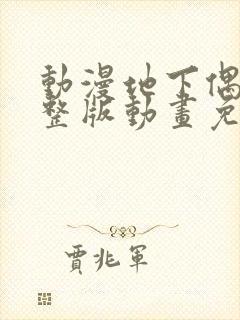 動漫地下偶
整版動畫免
賈兆軍